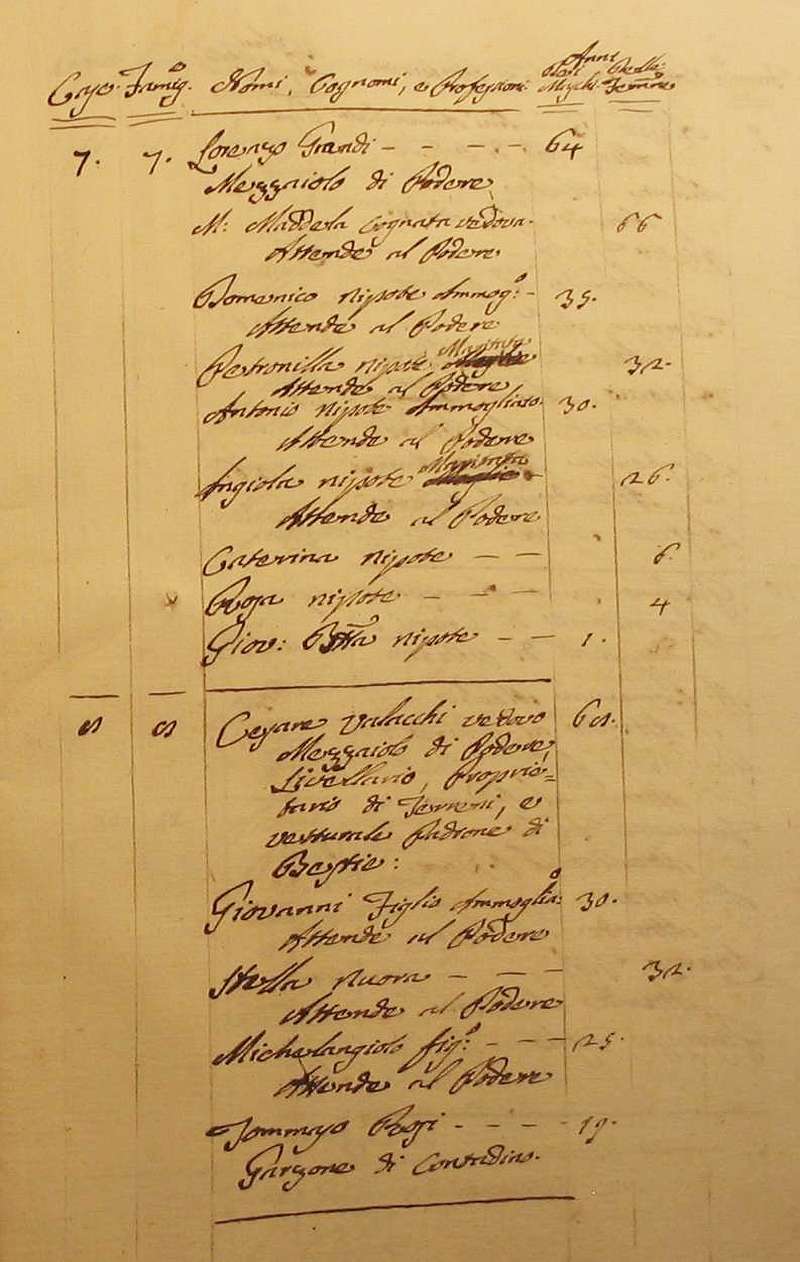 Case. Famig. Nomi, Cognomi, e Professioni. Anni
Maschi. Femine
7. 7. Lorenzo Grandi - - - - 64
Mezzaiolo di Podere
M: Madd.la Cognata vedova. 66
Attende al Podere
Domenico nipote Ammog:o - 35.
Attende al Podere
Petronilla nipote Maritata 32.
Attende al Podere
Antonio nipote Ammogliato. 30.
Attende al Podere
Angiola nipote Maritata - 26.
Attende al Podere
Caterina nipote - - 6.
Rosa nipote - - - 4
Giov: Btta nipote - - 1.
8 8 Cesare Valacchi vedovo 68.
Mezzaiolo di Podere,
Livellario, Proprie=
tario di Terreni, e
vetturale Padrone di
Bestie:
Giovanni Figlio Ammoglia:o 30.
Attende al Podere
Stella nuora - - - 32.
Attende al Podere
Michelangiolo fig:o - - - 25.
Attende al Podere
Tommaso Rosi - - - - 19.
Garzone di Contadino.